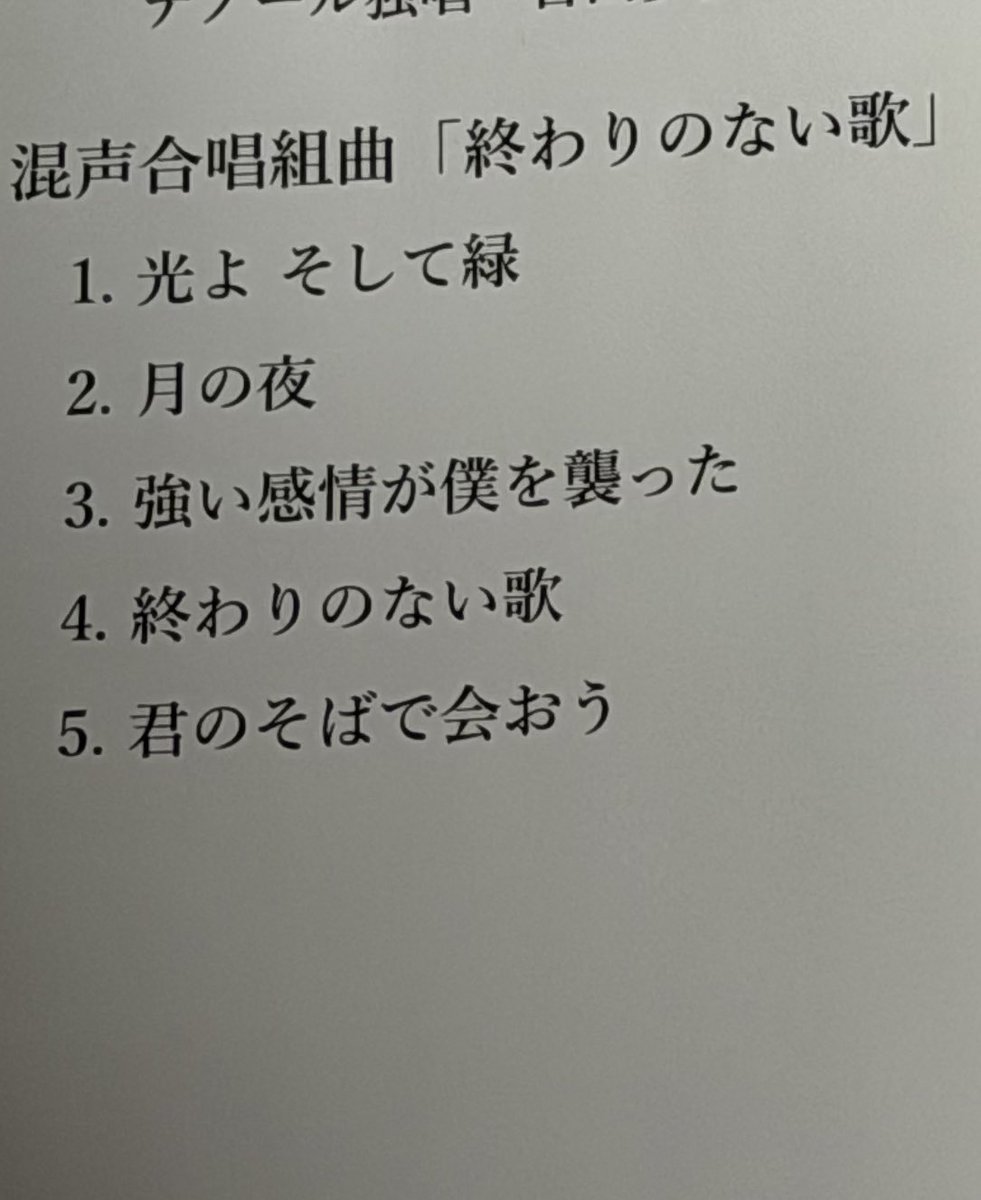 テノール独唱
混声合唱組曲「終わりのない歌」
1. 光よ そして緑
2. 月の夜
3. 強い感情が僕を襲った
4. 終わりのない歌
5. 君のそばで会おう